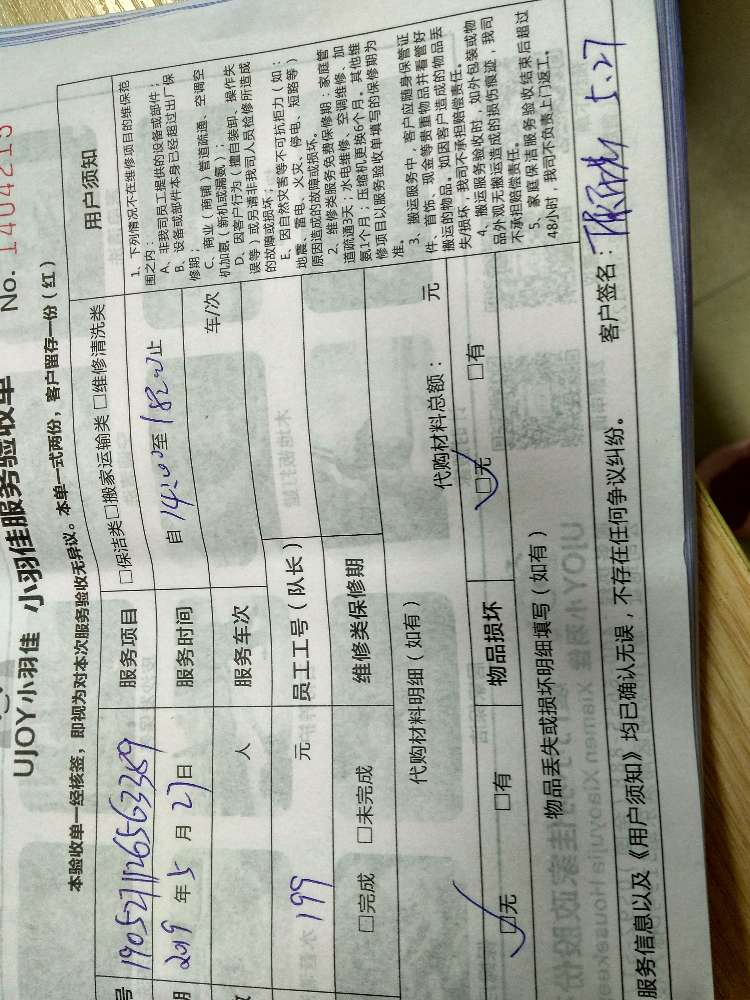 No. 1404215
UJOY小羽佳 小羽佳服务验收单
本验收单一经核签，即视为对本次服务验收无异议。本单一式两份，客户留存一份（红）
号 1905271126563369 服务项目 □保洁类□搬家运输类 □维修清洗类
期 2019 年 5 月 27 日 服务时间 自 14:00 至 18:00 止
人 服务车次 车/次
199 元 员工工号（队长）
□完成 □未完成 维修类保修期
代购材料明细（如有） 代购材料总额： 元
□无 □有 物品损坏 □无 □有
物品丢失或损坏明细填写（如有）
用户须知
1、下列情况不在维修项目的维保范
围之内：
A、非我司员工提供的设备或部件；
B、设备或部件本身已经超过出厂保
修期；
C、商业（商铺）管道疏通、空调空
机加氨（新机或漏氨）；
D、因客户行为（擅自装卸、操作失
误等）或另请非我司人员检修所造成
的故障或损坏；
E、因自然灾害等不可抗拒力（如：
地震、雷电、火灾、停电、短路等）
原因造成的故障或损坏。
2、维修类服务免费保修期：家庭管
道疏通3天；水电维修、空调维修、加
氨1个月；压缩机更换6个月。其他维
修项目以服务验收单填写的保修期为
准。
3、搬运服务中，客户应随身保管证
件、首饰、现金等贵重物品并看管好
搬运的物品。如因客户造成的物品丢
失/损坏，我司不承担赔偿责任。
4、搬运服务验收时，如外包装或物
品外观无搬运造成的损伤痕迹，我司
不承担赔偿责任。
5、家庭保洁服务验收结束后超过
48小时，我司不负责上门返工。
服务信息以及《用户须知》均已确认无误，不存在任何争议纠纷。 客户签名： 5.27